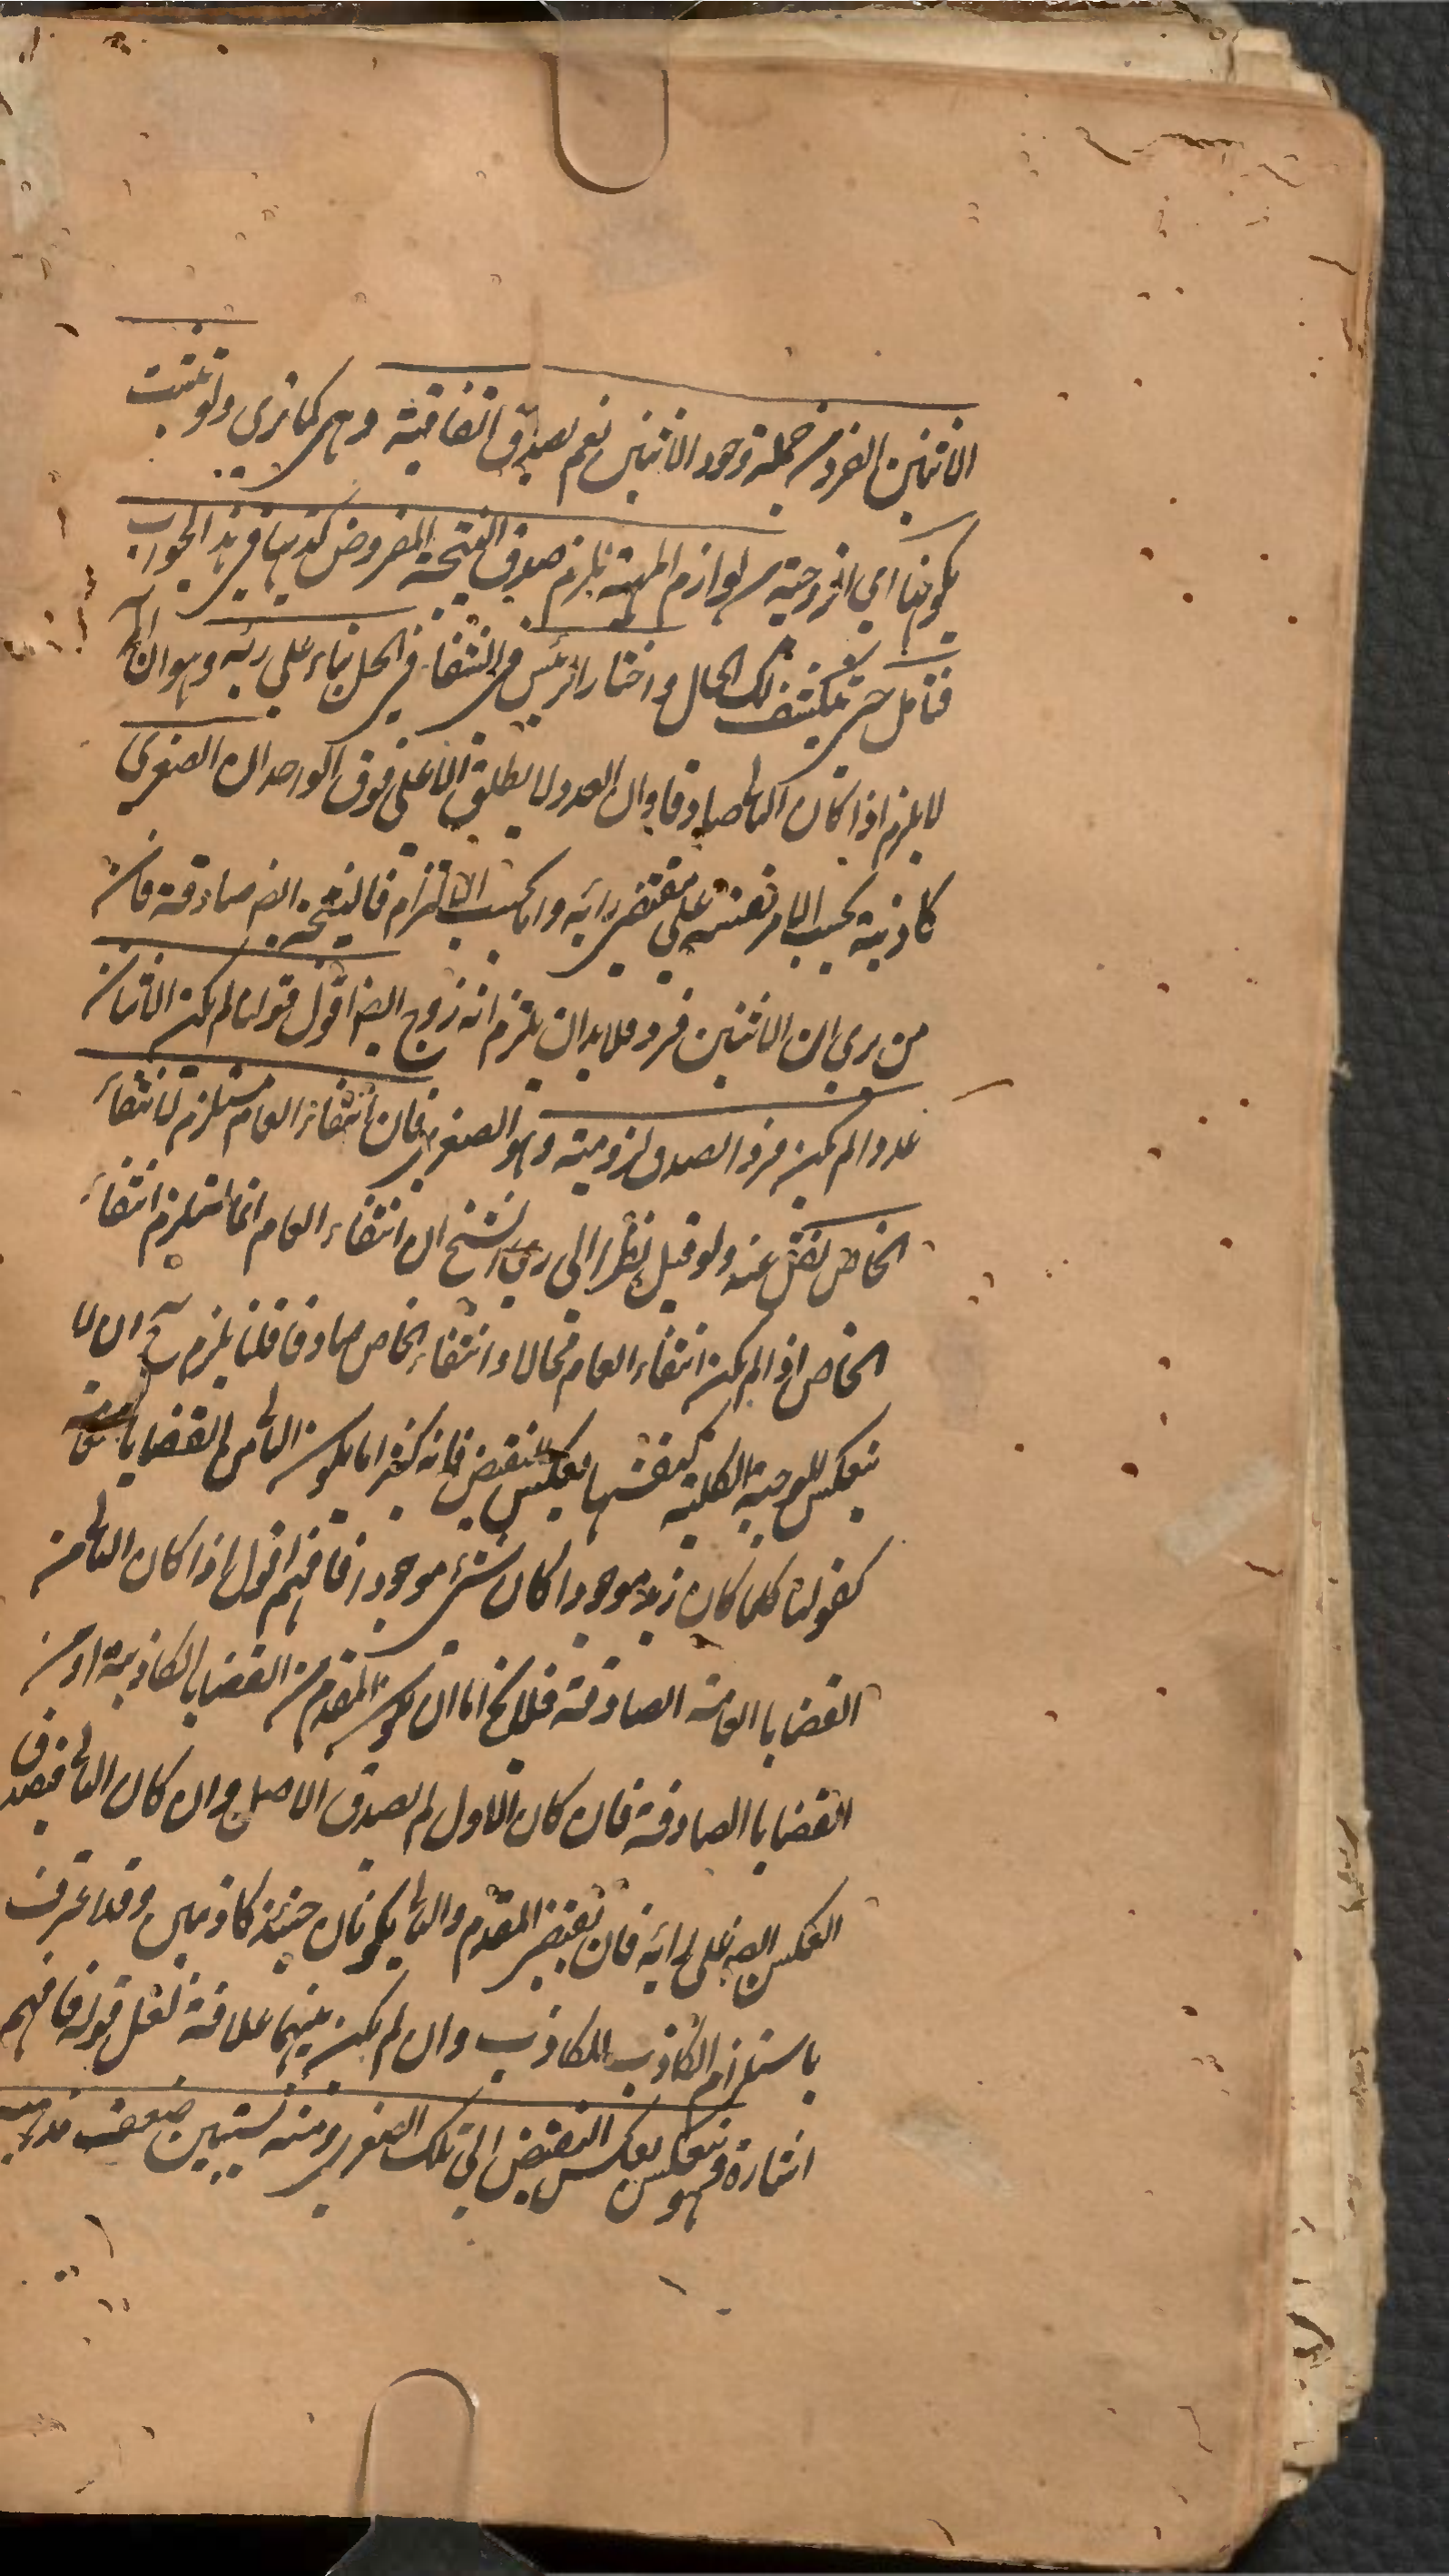 الاثنين الفرد من جملة وجود الاثنين نعم يصدق اتفاقية وهي كما ترى ولو تشبث
بكونها اي الزوجية من لوازم المهية يلزم صدق النتيجة المفروض كذبها في هذا الجواب
فتامل حتى ينكشف لك الحال واختار الرئيس في الشفاء في الحل بناء على رئه وهو ان
لا يلزم اذا كان التالي صادقا وان العدد لا يطلق الا على فوق الواحد ان الصغرى
كاذبة بحسب الامر نفسه على مقتضى رائه واما بحسب الالتزام فالنتيجة ايضا صادقة فان
من يرى ان الاثنين فرد فلا بد ان يلتزم انه زوج ايضا اقول قولنا لم يكن الاثنان
عددا لم يكن فردا يصدق لزومية وهو الصغرى فان انتفاء العام مستلزم لانتفاء
الخاص نقل عنه ولو قيل نظرا الى رئ الشيخ ان انتفاء العام انما استلزم انتفاء
الخاص اذا لم يكن انتفاء العام محالا وانتفاء الخاص صادقا قلنا يلزم ح ان لا
ينعكس الموجبة الكلية كنفسها بعكس النقيض فانه كثيرا ما يكون التالي من القضايا
كقولنا كلما كان زيد موجودا كان شئ موجودا فافهم اقول اذا كان التالي من
القضايا العامة الصادقة فلا يخ اما ان يكون المقدم من القضايا الكاذبة او من
القضايا الصادقة فان كان الاول لم يصدق الاصل وان كان التالي فيصدق
العكس ايضه على رائه فان نقيض المقدم والتالي يكونان حينئذ كاذبين وقد اعترف
باستلزام الكاذب للكاذب وان لم يكن بينهما علاقة نقل قوله فافهم
اشارة فهو ينعكس بعكس النقيض الى تلك الصغرى ومنه يستبين ضعف مذهبه